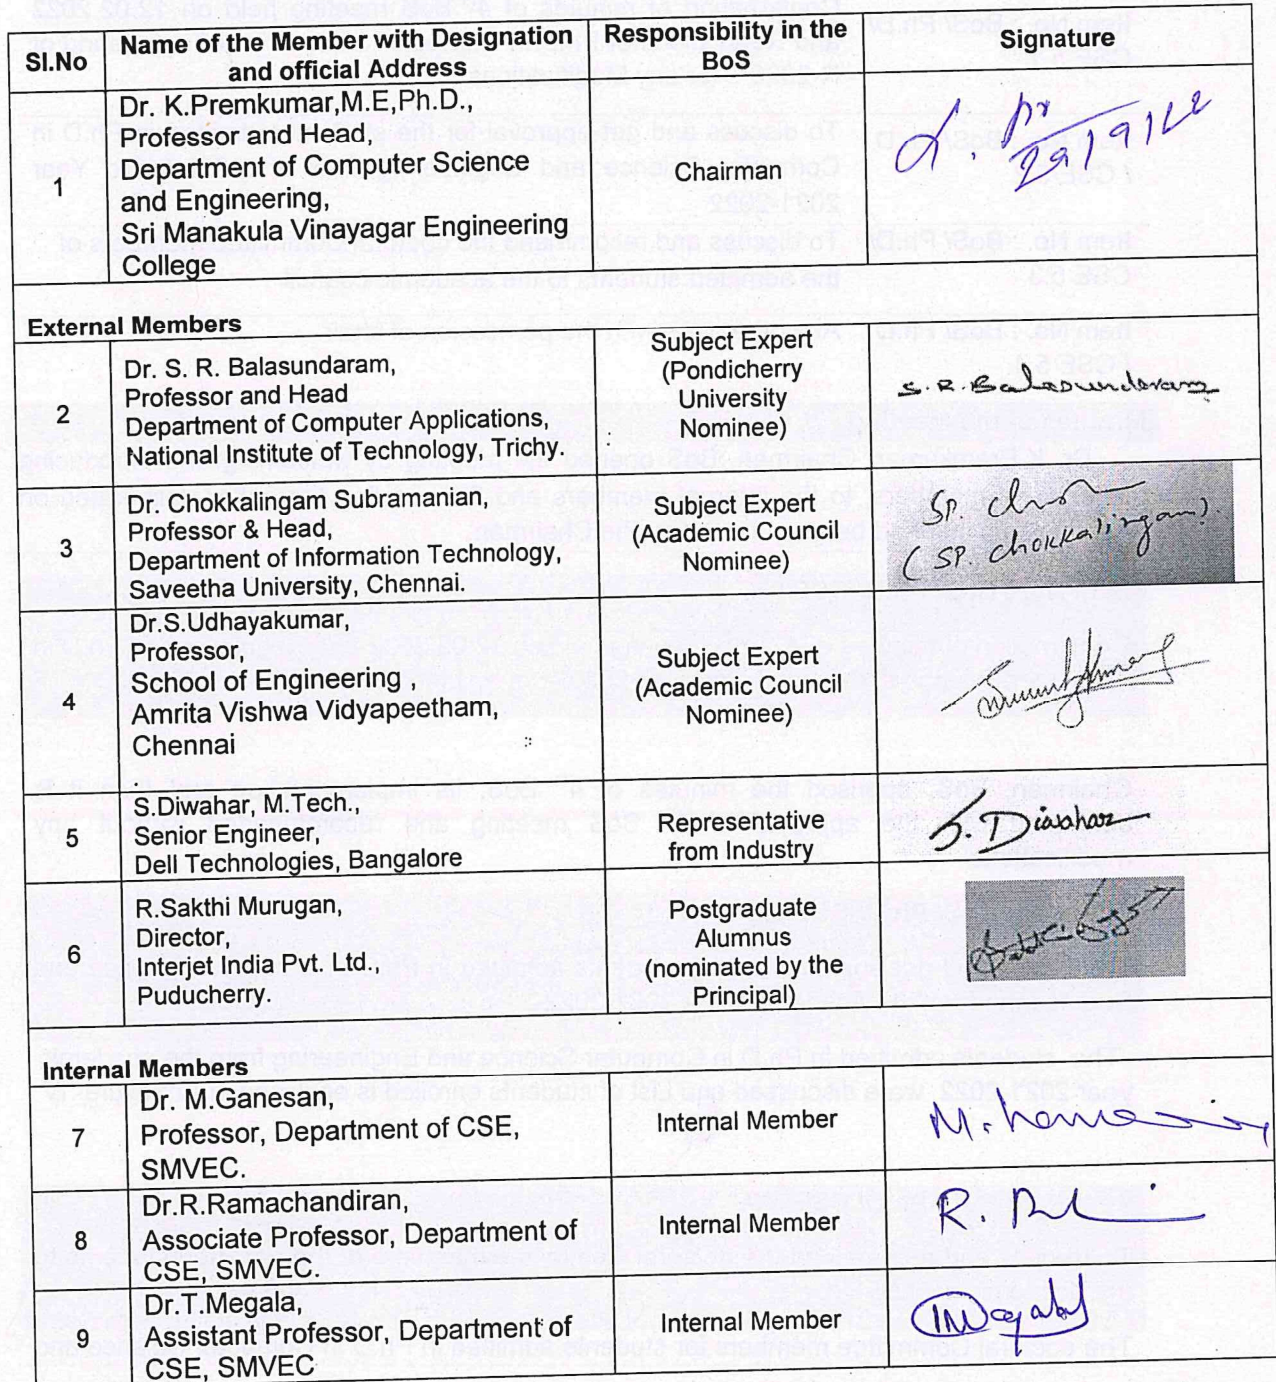 Sl.No
Name of the Member with Designation
and official Address
Responsibility in the
BoS
Signature
1
Dr. K.Premkumar,M.E,Ph.D.,
Professor and Head,
Department of Computer Science
and Engineering,
Sri Manakula Vinayagar Engineering
College
Chairman
29/9/22
External Members
2
Dr. S. R. Balasundaram,
Professor and Head
Department of Computer Applications,
National Institute of Technology, Trichy.
Subject Expert
(Pondicherry
University
Nominee)
S.R.Balasundaram
3
Dr. Chokkalingam Subramanian,
Professor & Head,
Department of Information Technology,
Saveetha University, Chennai.
Subject Expert
(Academic Council
Nominee)
SP.
(SP. Chokkalingam).
4
Dr.S.Udhayakumar,
Professor,
School of Engineering ,
Amrita Vishwa Vidyapeetham,
Chennai
Subject Expert
(Academic Council
Nominee)
5
S.Diwahar, M.Tech.,
Senior Engineer,
Dell Technologies, Bangalore
Representative
from Industry
S. Diwahar
6
R.Sakthi Murugan,
Director,
Interjet India Pvt. Ltd.,
Puducherry.
Postgraduate
Alumnus
(nominated by the
Principal)
Internal Members
7
Dr. M.Ganesan,
Professor, Department of CSE,
SMVEC.
Internal Member
8
Dr.R.Ramachandiran,
Associate Professor, Department of
CSE, SMVEC.
Internal Member
R.
9
Dr.T.Megala,
Assistant Professor, Department of
CSE, SMVEC
Internal Member